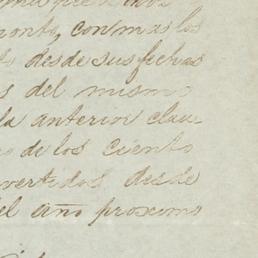 pronto, con mas los
desde sus fechas
s del mismo
la anterior clau-
o de los ciento
vertidos desde
el año proximo